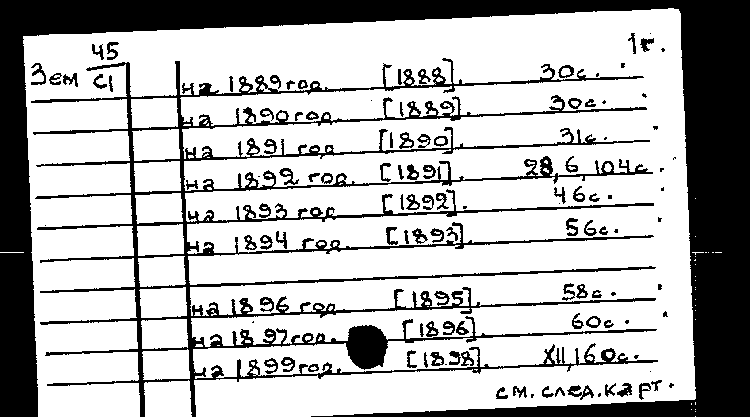 1г.
Зем 45/С1
на 1889 год. [1888]. 30с.
на 1890 год. [1889]. 30с.
на 1891 год [1890]. 31с.
на 1892 год. [1891]. 28, 6, 104с.
на 1893 год [1892]. 46с.
на 1894 год. [1893]. 56с.
на 1896 год [1895]. 58с.
на 1897 год. [1896]. 60с.
на 1899 год. [1898]. XII, 160с.
см. след. карт.